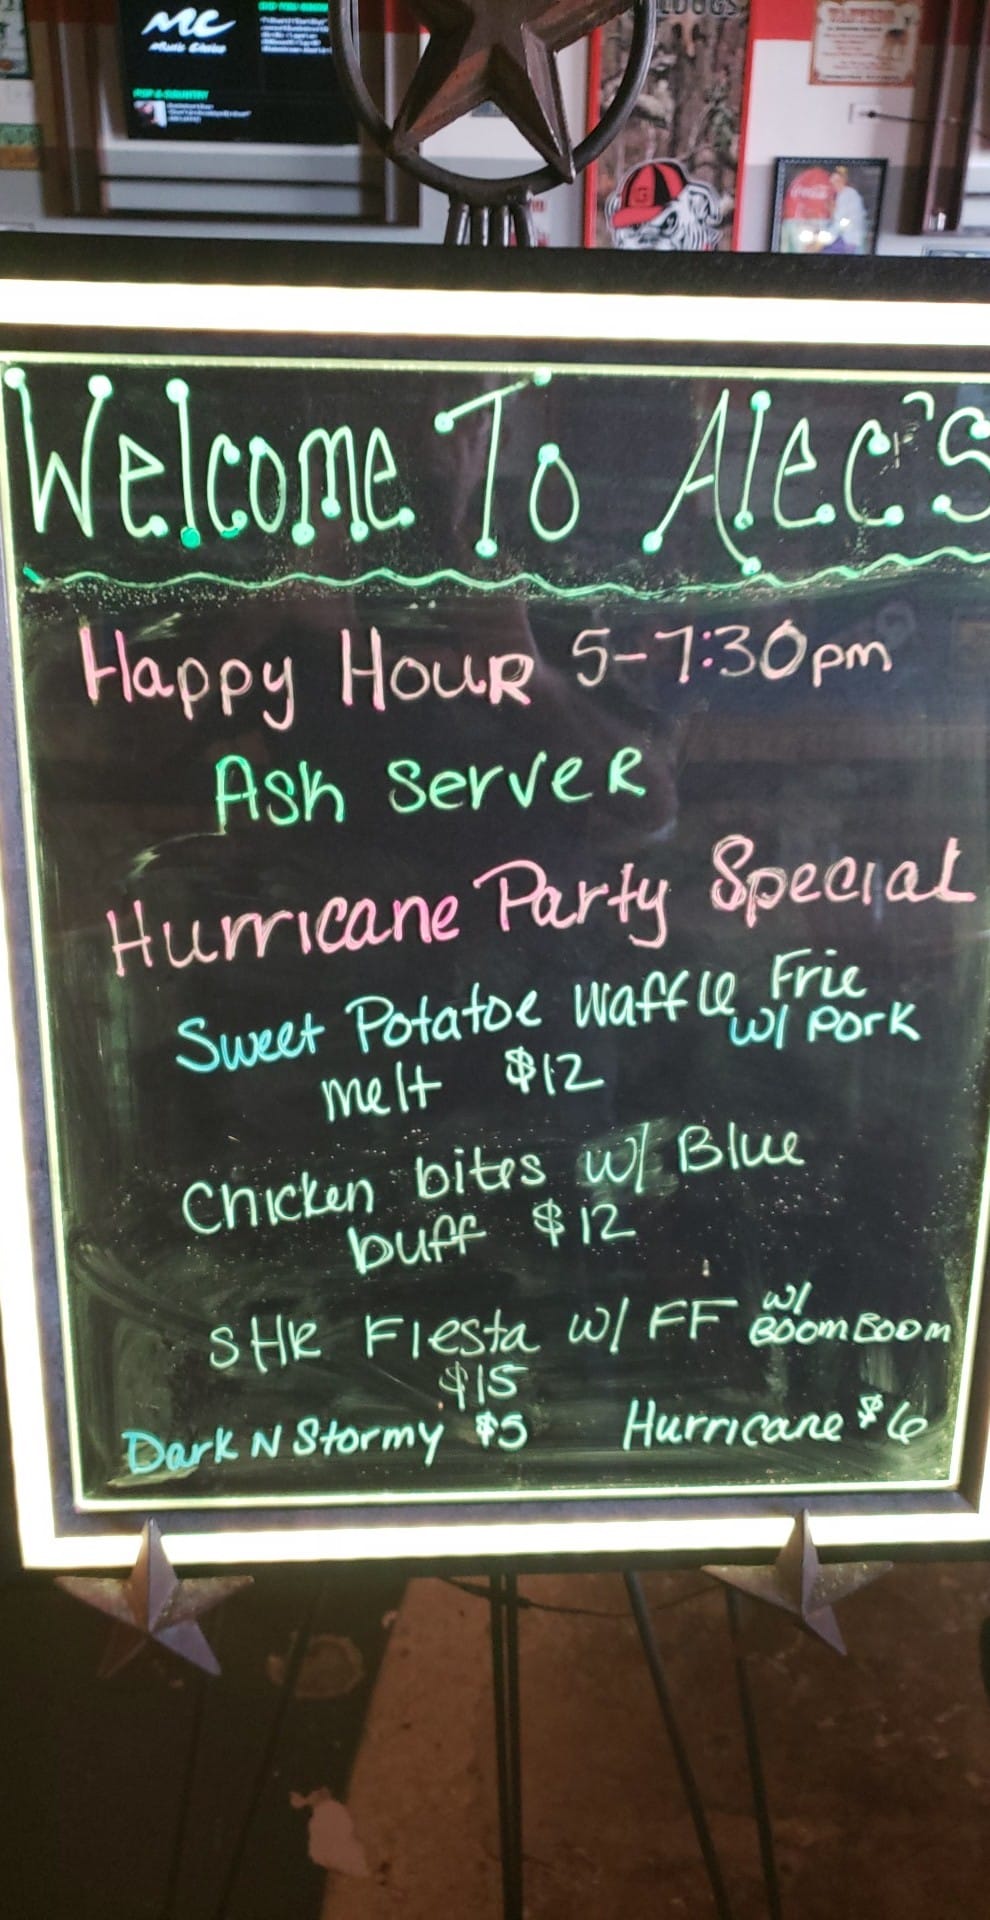 MC
Music Choice
Welcome To Alec's
Happy Hour 5-7:30pm
Ask Server
Hurricane Party Special
Sweet Potatoe Waffle Frie
w/ Pork
melt $12
Chicken bites w/ Blue
buff $12
w/
SHR Fiesta w/ FF BoomBoom
$15
Dark N Stormy $5 Hurricane $6